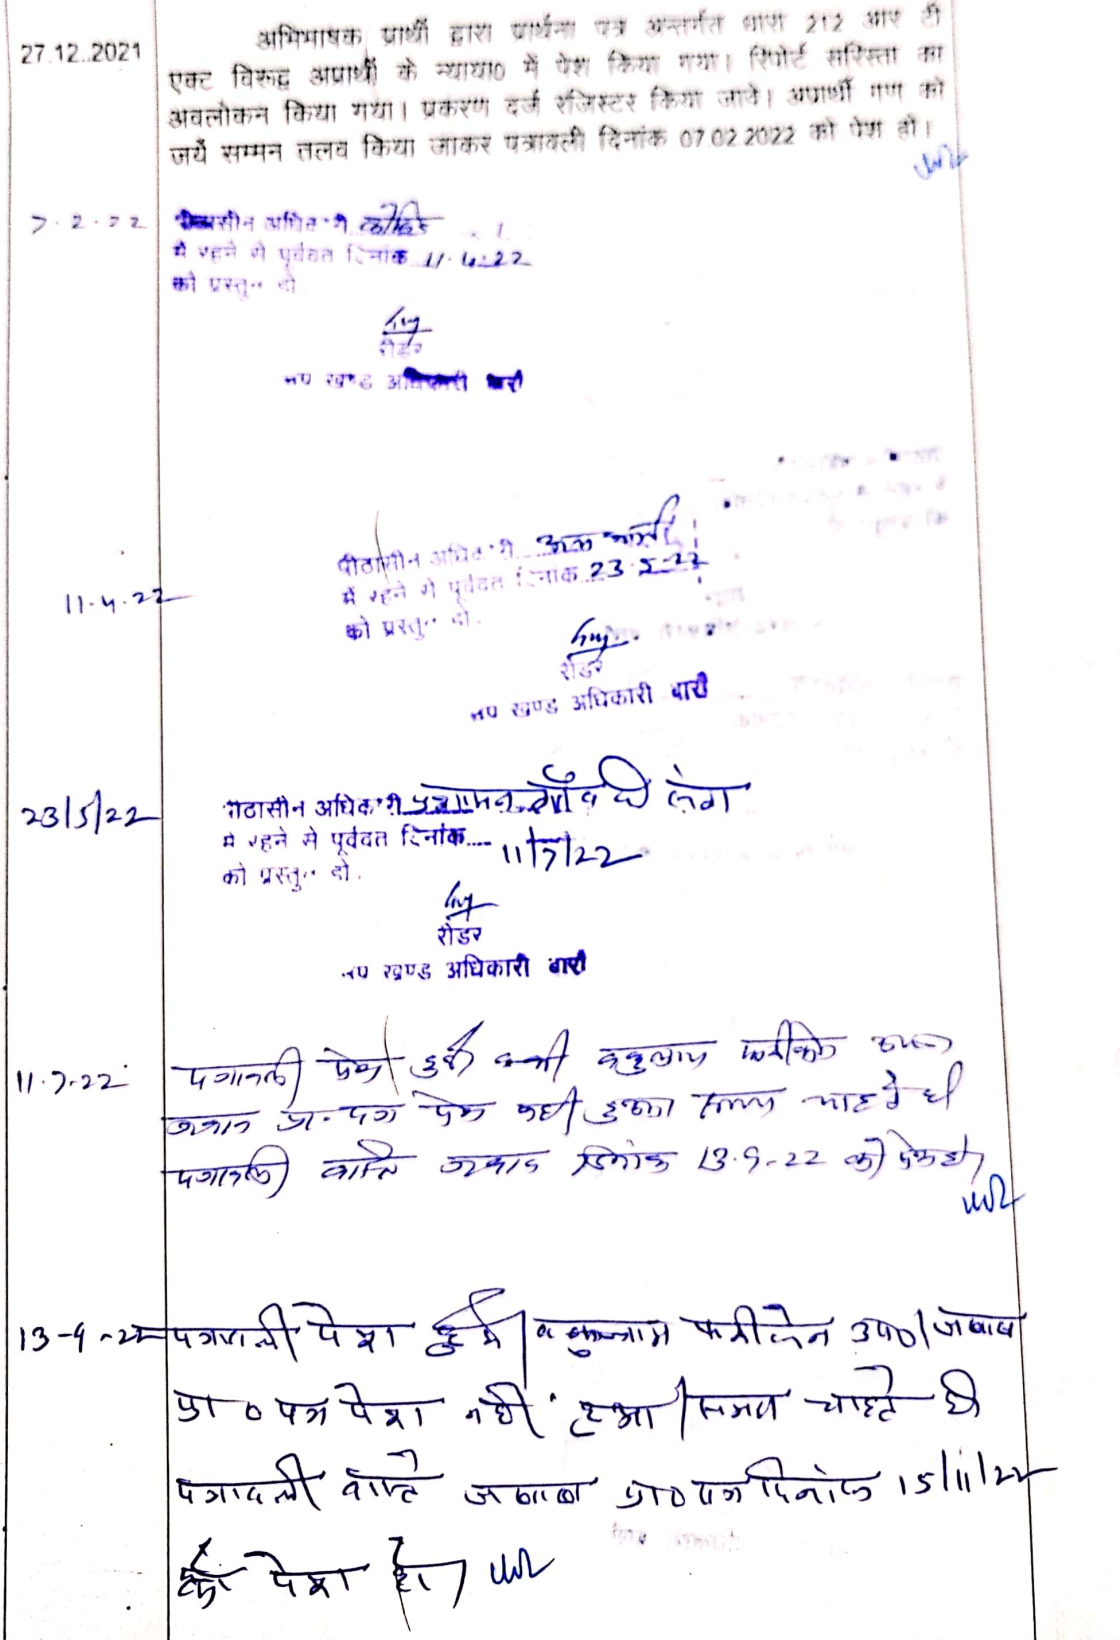 27.12..2021
अभिभाषक प्रार्थी द्वारा प्रार्थना पत्र अन्तर्गत धारा 212 आर टी
एक्ट विरूद्ध अप्रार्थी के न्याया0 में पेश किया गया। रिपोर्ट सरिस्ता का
अवलोकन किया गया। प्रकरण दर्ज रजिस्टर किया जावे। अप्रार्थी गण को
जर्ये सम्मन तलव किया जाकर पत्रावली दिनांक 07.02.2022 को पेश हो।
7.2.22
पीठासीन अधिकारी
में रहने से पूर्ववत दिनांक 11.4.22
को प्रस्तुत हो
रीडर
उप खण्ड अधिकारी बारी
11.4.22
पीठासीन अधिकारी
में रहने से पूर्ववत दिनांक 23.5.22
को प्रस्तुत हो.
रीडर
उप खण्ड अधिकारी बारी
23/5/22
पीठासीन अधिकारी प्रशासन गाँव के संग
में रहने से पूर्ववत दिनांक.... 11/7/22
को प्रस्तुत हो.
रीडर
उप खण्ड अधिकारी बारी
11.7.22
पत्रावली पेश हुई वकुलाय फरीकेन
जवाब प्रा. पत्र पेश नहीं हुआ समय चाहते है
पत्रावली वास्ते जवाब दिनांक 13.9.22 को पेश हो।
13-9-22
पत्रावली पेश हुई। वकुलाय फरीकेन उप0। जवाब
प्रा0 पत्र पेश नहीं हुआ। समय चाहते है
पत्रावली वास्ते जवाब प्रा0 पत्र दिनांक 15/11/22
को पेश हो।